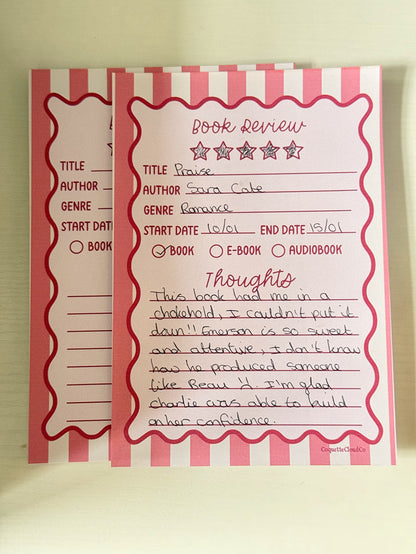 Book Review
TITLE Praise
AUTHOR Sara Cate
GENRE Romance
START DATE 10/01 END DATE 15/01
BOOK E-BOOK AUDIOBOOK
Thoughts
This book had me in a
chokehold, I couldn't put it
down!! Emerson is so sweet
and attentive, I don't know
how he produced someone
like Beau. I'm glad
charlie was able to build
on her confidence.
CoquetteCloudCo
TITLE
AUTHOR
GENRE
START DATE
BOOK